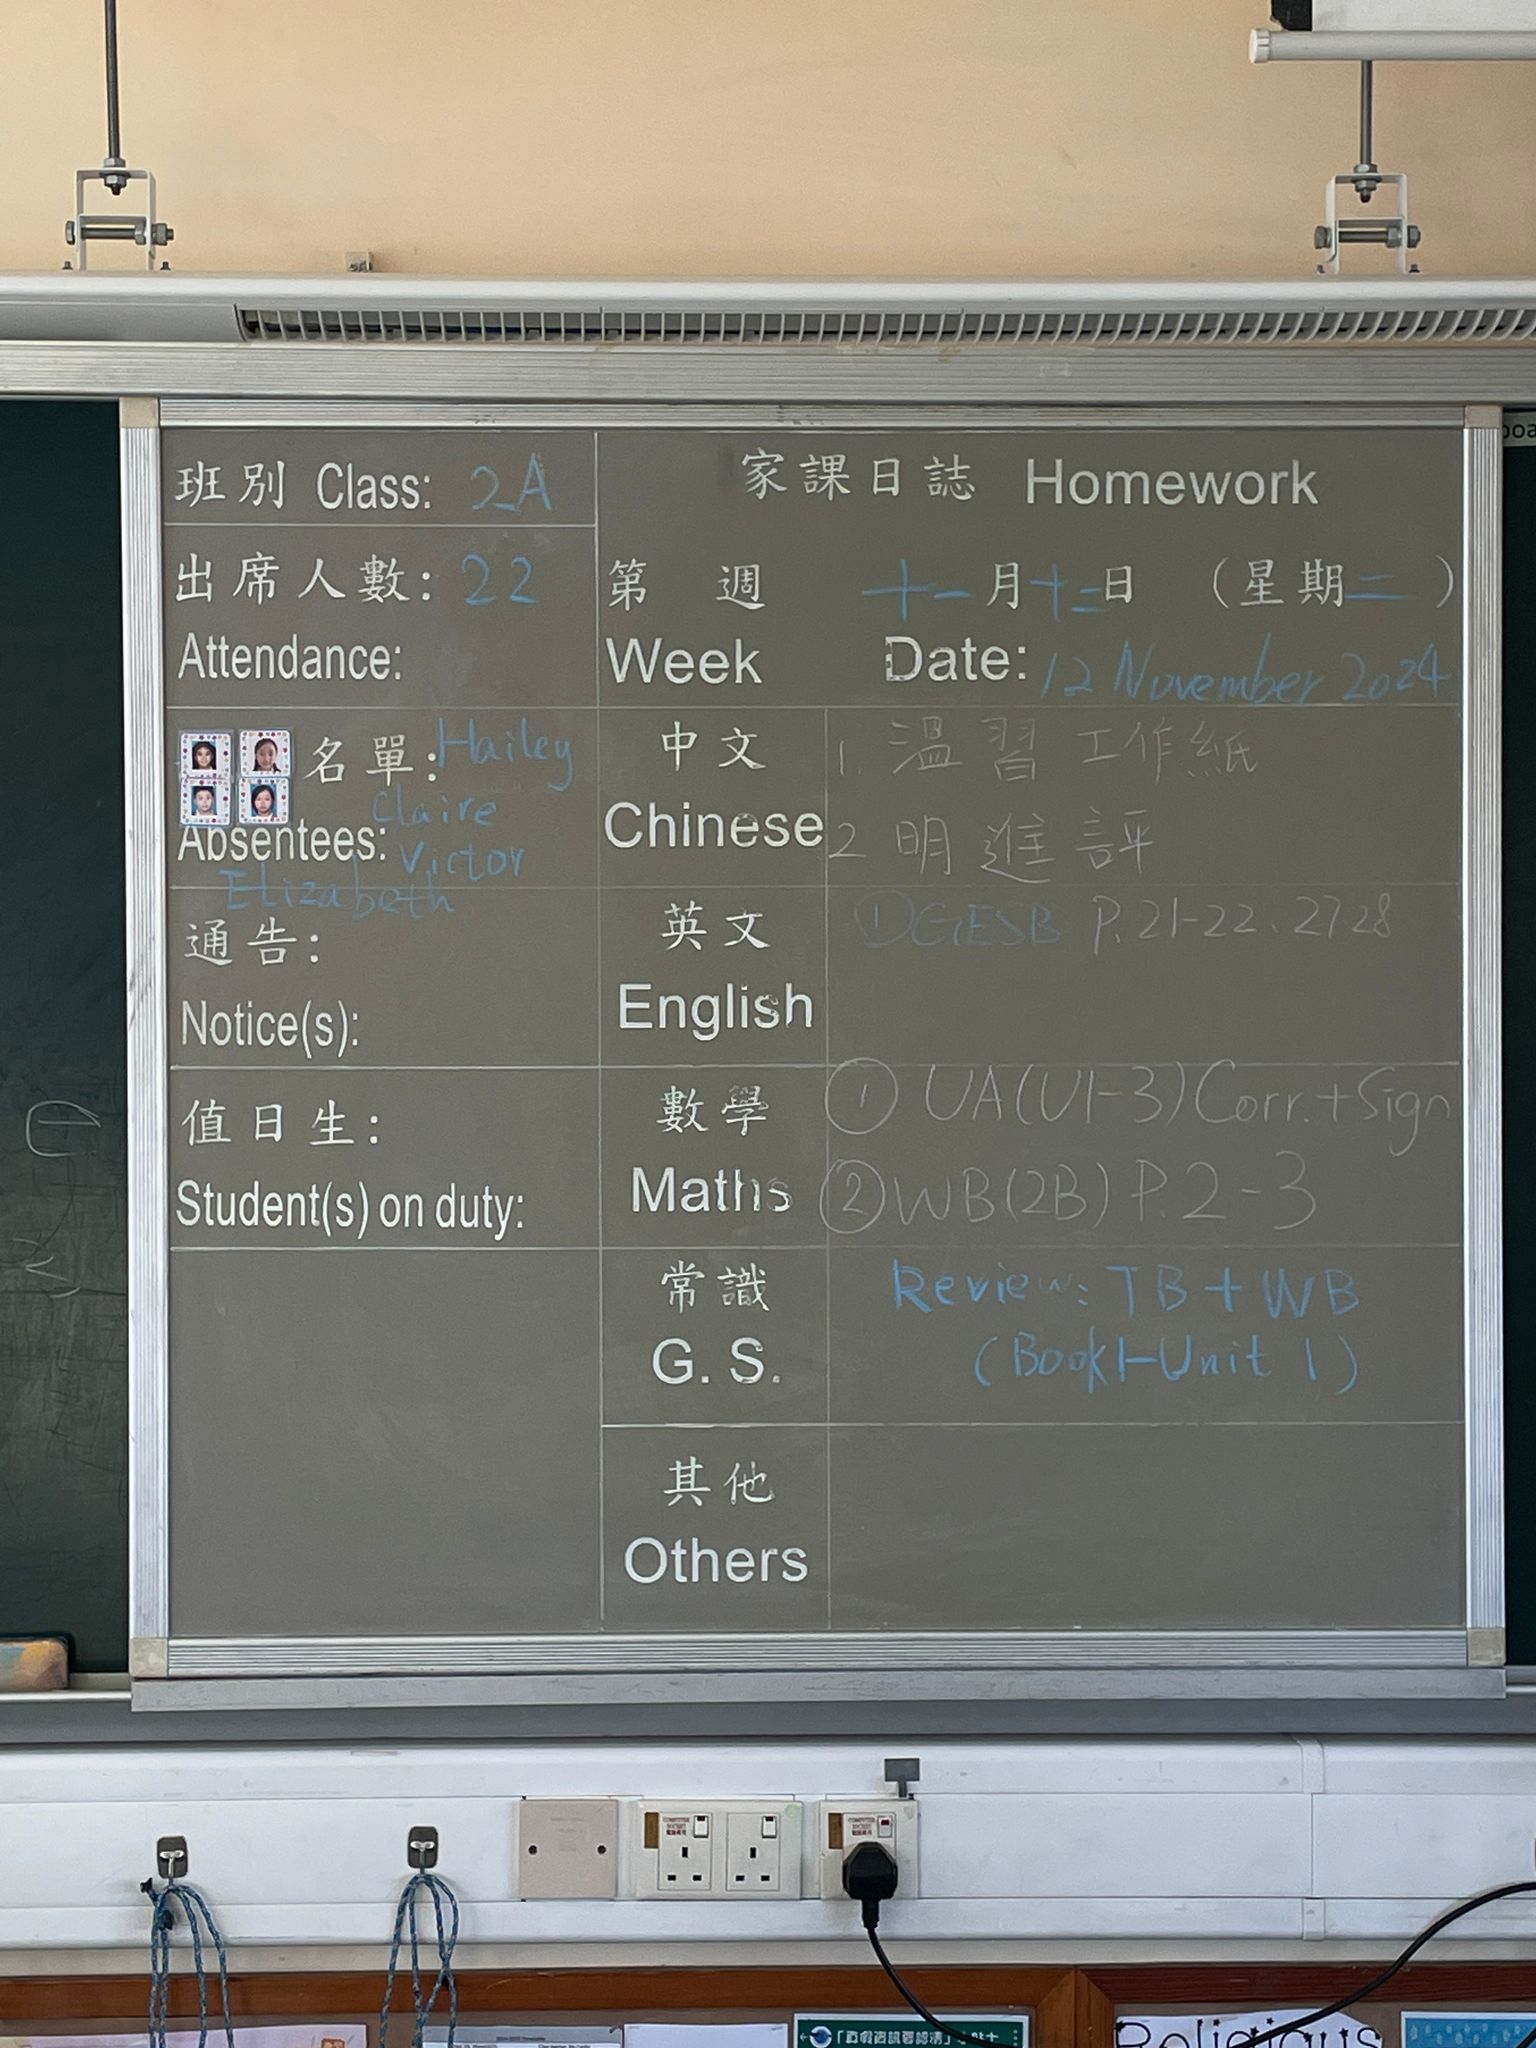 班別 Class: 2A
出席人數: 22
Attendance:
名單: Hailey
Claire
Absentees: Victor
Elizabeth
通告:
Notice(s):
值日生:
Student(s) on duty:
家課日誌 Homework
第 週 十一月十二日 (星期二)
Week Date: 12 November 2024
中文 1. 溫習工作紙
Chinese 2 明進評
英文 ①GESB P.21-22, 27-28
English
數學 ① UA(U1-3) Corr. + Sign
Maths ② WB(2B) P.2-3
常識 Review: TB + WB
G. S. (Book1-Unit 1)
其他
Others
COMPUTER SOCKET
COMPUTER SOCKET
Religious